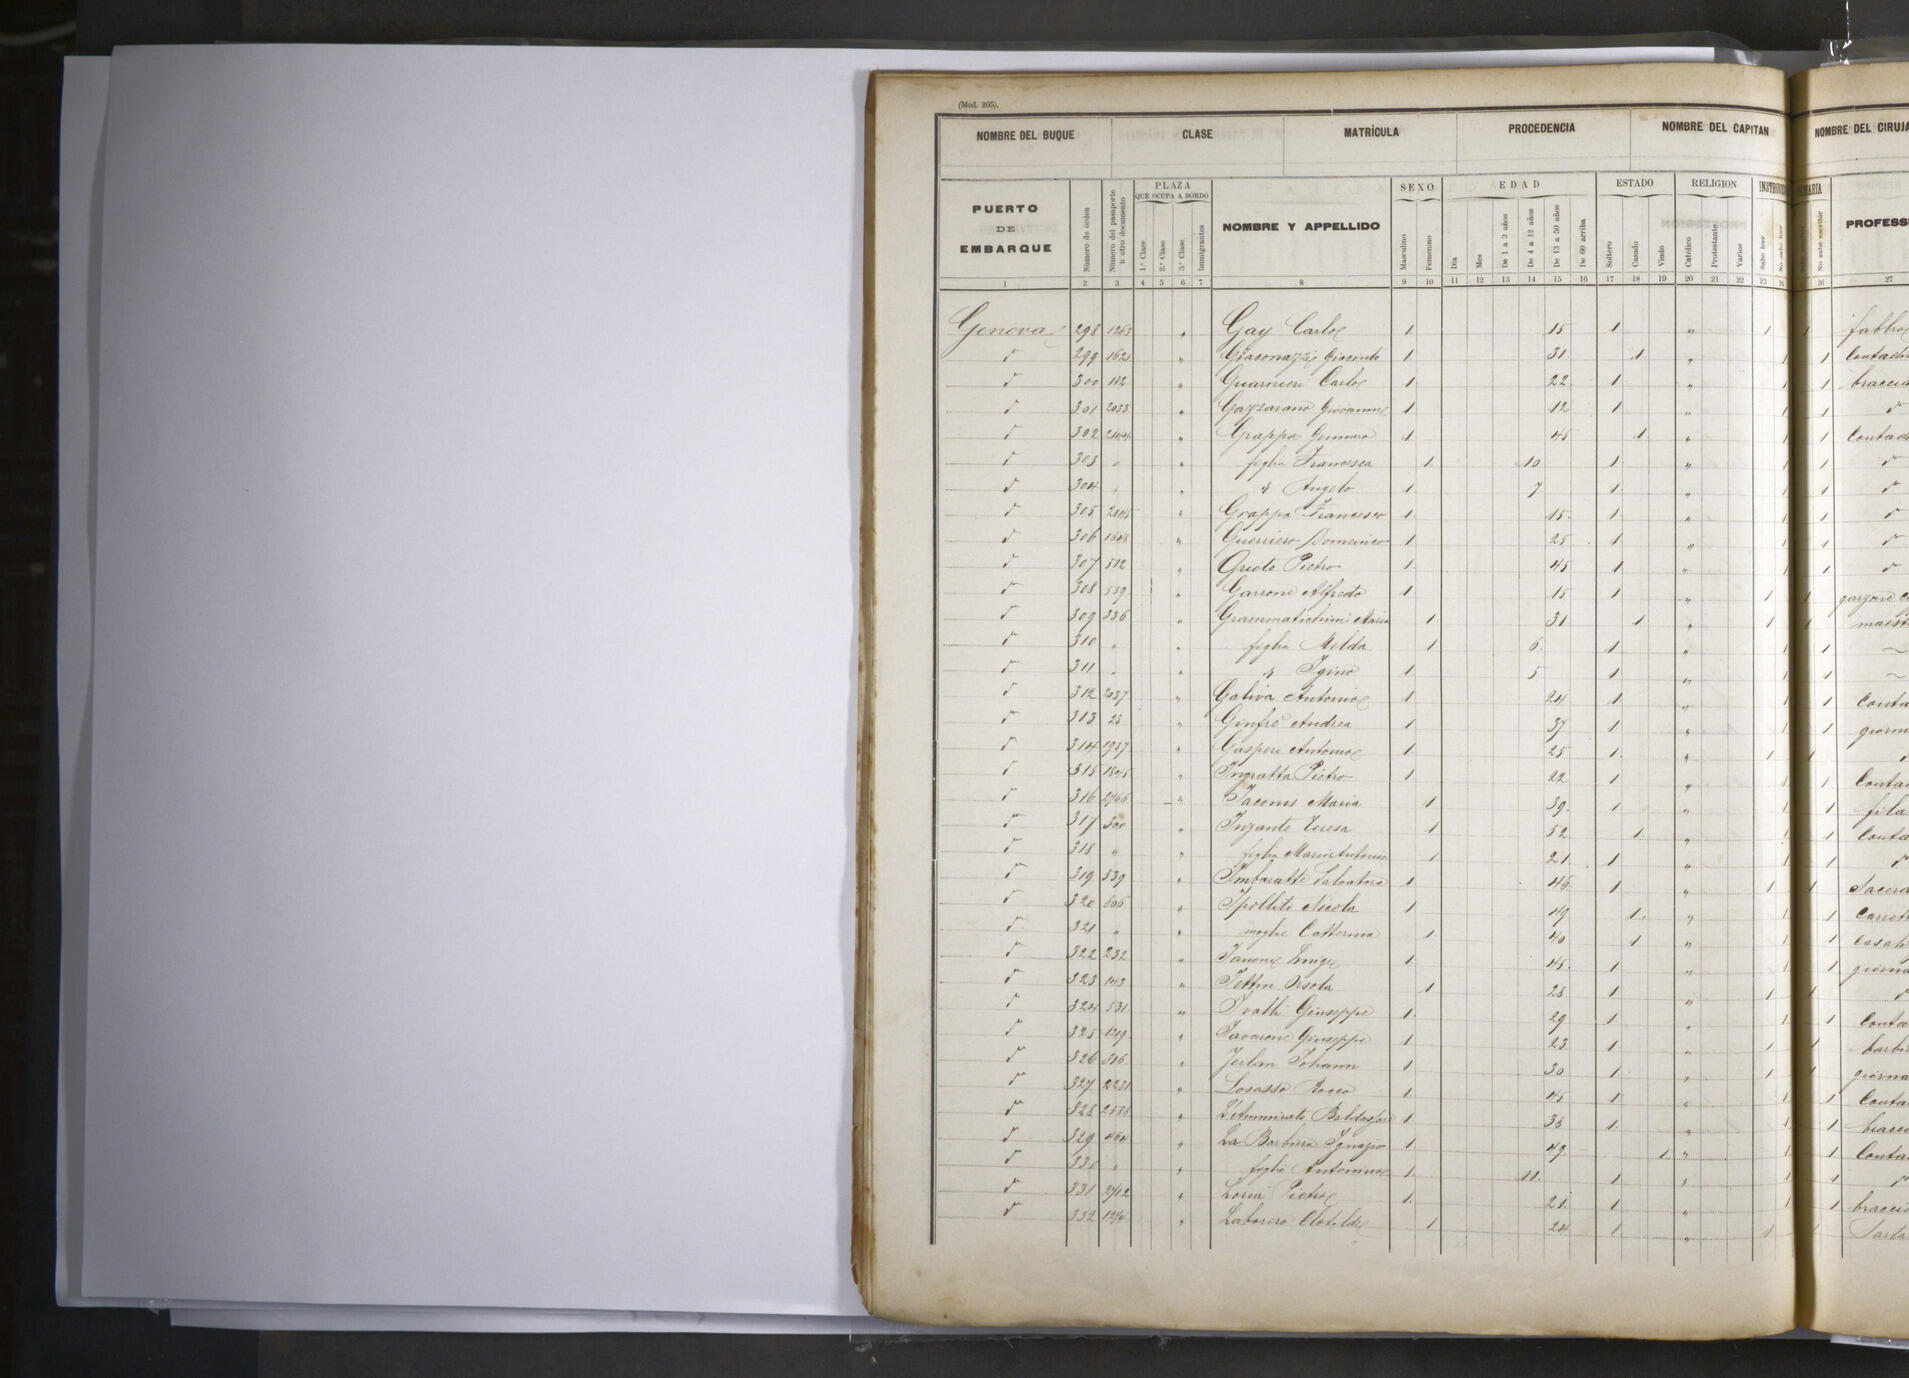 (Mod. 205).
NOMBRE DEL BUQUE CLASE MATRÍCULA PROCEDENCIA NOMBRE DEL CAPITAN NOMBRE DEL CIRUJA
PUERTO DE EMBARQUE Número de orden Número del pasaporte u otro documento PLAZA QUE OCUPA A BORDO 1.ª Clase 2.ª Clase 3.ª Clase Inmigrantes NOMBRE Y APPELLIDO SEXO Masculino Femenino EDAD Dia Mes De 1 a 3 años De 4 a 12 años De 13 a 59 años De 60 arriba ESTADO Soltero Casado Viudo RELIGION Católico Protestante Varios Sabe leer No sabe leer No sabe escribir PROFESS
1 2 3 4 5 6 7 8 9 10 11 12 13 14 15 16 17 18 19 20 21 22 23 24 26 27
Genova 298 1263 " Gay Carlo 1 15 1 " 1 1 fabbro
299 1621 " Giacinto 1 31 1 " 1 1 Contad
300 182 " Guarnieri Carlo 1 22 1 " 1 1 braccia
301 2033 " Gazzarano Giovanni 1 12 1 " 1 1
302 " Grappa Gennaro 1 45 1 " 1 1 Contad
303 " " figlia Francesca 1 10 1 " 1 1
304 " " " Angelo 1 7 1 " 1 1
305 " Grappa Francesco 1 15 1 " 1 1
306 1648 " Guerriero Domenico 1 25 1 " 1 1
307 512 " Pietro 1 45 1 " 1 1
308 539 " Garrone Alfredo 1 15 1 " 1 1 garzone
309 336 " Maria 1 31 1 " 1 1 maest
310 " " figlia Melda 1 6 1 " 1 1 ~
311 " " " Igino 1 5 1 " 1 1 ~
312 2037 " Galiva Antonio 1 24 1 " 1 1 Conta
313 23 " Ginfrè Andrea 1 37 1 " 1 1 giorn
314 1937 " Gasperi Antonio 1 25 1 " 1 1
315 1845 " Ingratta Pietro 1 22 1 " 1 1 Conta
316 2766 " Iaconis Maria 1 39 1 " 1 1 fila
317 300 " Inzante Teresa 1 52 1 " 1 1 Conta
318 " " figlia Maria Antonia 1 21 1 " 1 1
319 539 " Salvatore 1 45 1 " 1 1 Sacer
320 806 " Ipollito Nicola 1 49 1 " 1 1 Carret
321 " " moglie Catterina 1 40 1 " 1 1 casal
322 232 " Luigi 1 45 1 " 1 1 giorna
323 " Orsola 1 28 1 " 1 1
324 531 " Ivalli Giuseppe 1 29 1 " 1 1 Conta
325 " Iavarone Giuseppe 1 23 1 " 1 1 barbi
326 306 " Johann 1 30 1 " 1 1 giorna
327 2231 " Losasso Rocco 1 45 1 " 1 1 Conta
328 2588 " L'Amminato 1 38 1 " 1 1 bracci
329 464 " La Barbiera Ignazio 1 49 1 " 1 1 Conta
330 " " figlio Antonino 1 11 1 " 1 1
331 2712 " Loria Pietro 1 21 1 " 1 1 braccia
332 " Laborero Clotilde 1 24 1 " 1 1 Sarta